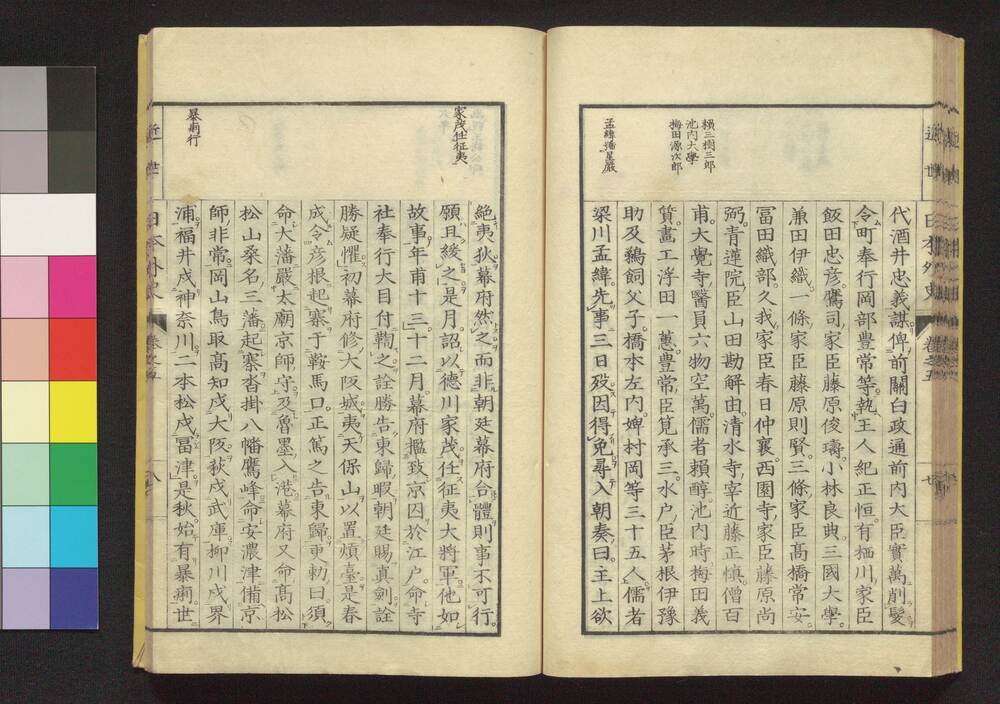 賴三樹三郎
池內大學
梅田源次郎
孟緯號星巖
代酒井忠義謀俾前關白政通前內大臣實萬削髮
令町奉行岡部豊常等執王人紀正恒有栖川家臣
飯田忠彦鷹司家臣藤原俊璹小林良典三國大學
兼田伊織一條家臣藤原則賢三條家臣髙橋常安
冨田織部久我家臣春日仲襄西園寺家臣藤原尚
弼青蓮院臣山田勘解由清水寺宰近藤正慎僧百
甫大覺寺醫員六物空萬儒者賴醇池內時梅田義
質畵工浮田一蕙豊常臣筧承三水户臣茅根伊豫
助及鵜飼父子橋本左內婢村岡等三十五人儒者
梁川孟緯先事三日殁因得免尋入朝奏曰主上欲
家茂任征夷
暴痢行
絶夷狄幕府然之而非朝廷幕府合體則事不可行
願且緩之是月詔以德川家茂任征夷大將軍他如
故事年甫十三十二月幕府檻致京囚於江户命寺
社奉行大目付鞫之詮勝告東歸暇朝廷賜真劍詮
勝疑懼初幕府修大阪城夷天保山以置煩臺是春
成令彦根起寨于鞍馬口正篤之告東歸更勅曰須
命大藩嚴太廟京師守及魯墨入港幕府又命髙松
松山桑名三藩起寨沓掛八幡鷹峰命安濃津備京
師非常岡山鳥取髙知戍大阪荻戍武庫柳川戍界
浦福井戍神奈川二本松戍冨津是秋始有暴痢世
近世日本外史
卷之五
八